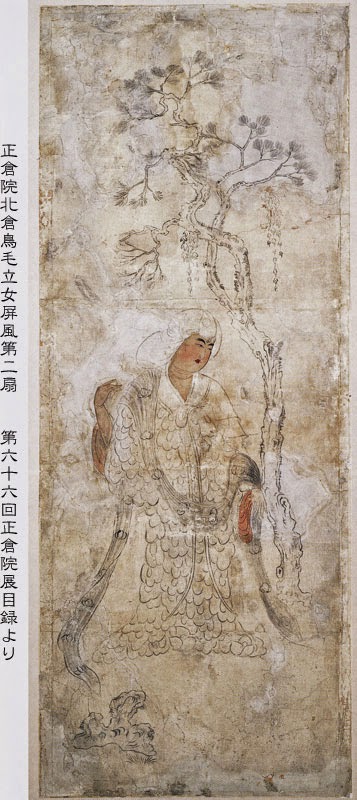 正倉院北倉鳥毛立女屏風第二扇　第六十六回正倉院展目録より